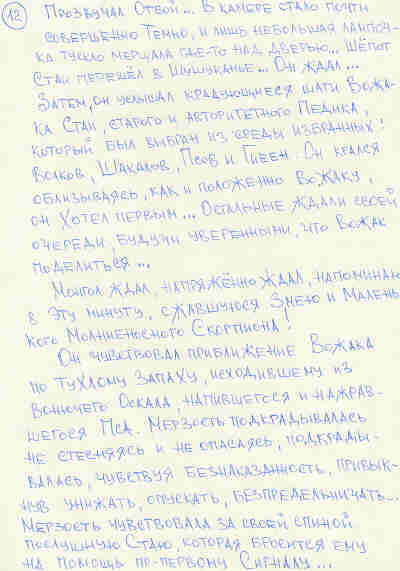 12
Прозвучал Отбой... В камере стало почти
совершенно темно, и лишь небольшая лампоч-
ка тускло мерцала где-то над дверью... Шёпот
Стаи перешёл в Шушуканье... Он ждал...
Затем, он услышал крадующиеся шаги Вожа-
ка Стаи, старого и авторитетного Педика,
который был выбран из среды избранных!
Волков, Шакалов, Псов и Гиеен. Он крался
облизываясь, как и положенно Вожаку,
он Хотел первым... Остальные ждали своей
очереди, будучи уверенными, что Вожак
поделиться...
Монгол ждал, напряжённо ждал, напоминая
в эту минуту, сжавшуюся Змею и Малень
кого Молниеносного Скорпиона!
Он чувствовал приближение Вожака
по тухлому запаху, исходившему из
Вонючего Оскала, напившегося и нажрав-
шегося Пса. Мерзость подкрадывалась
не стесняясь и не опасаясь, подкрады-
валась, чувствуя безнаказанность, привык-
нув унижать, опускать, беспредельничать...
Мерзость чувствовала за своей спиной
послушную Стаю, которая бросится ему
на помощь по-первому Сигналу...